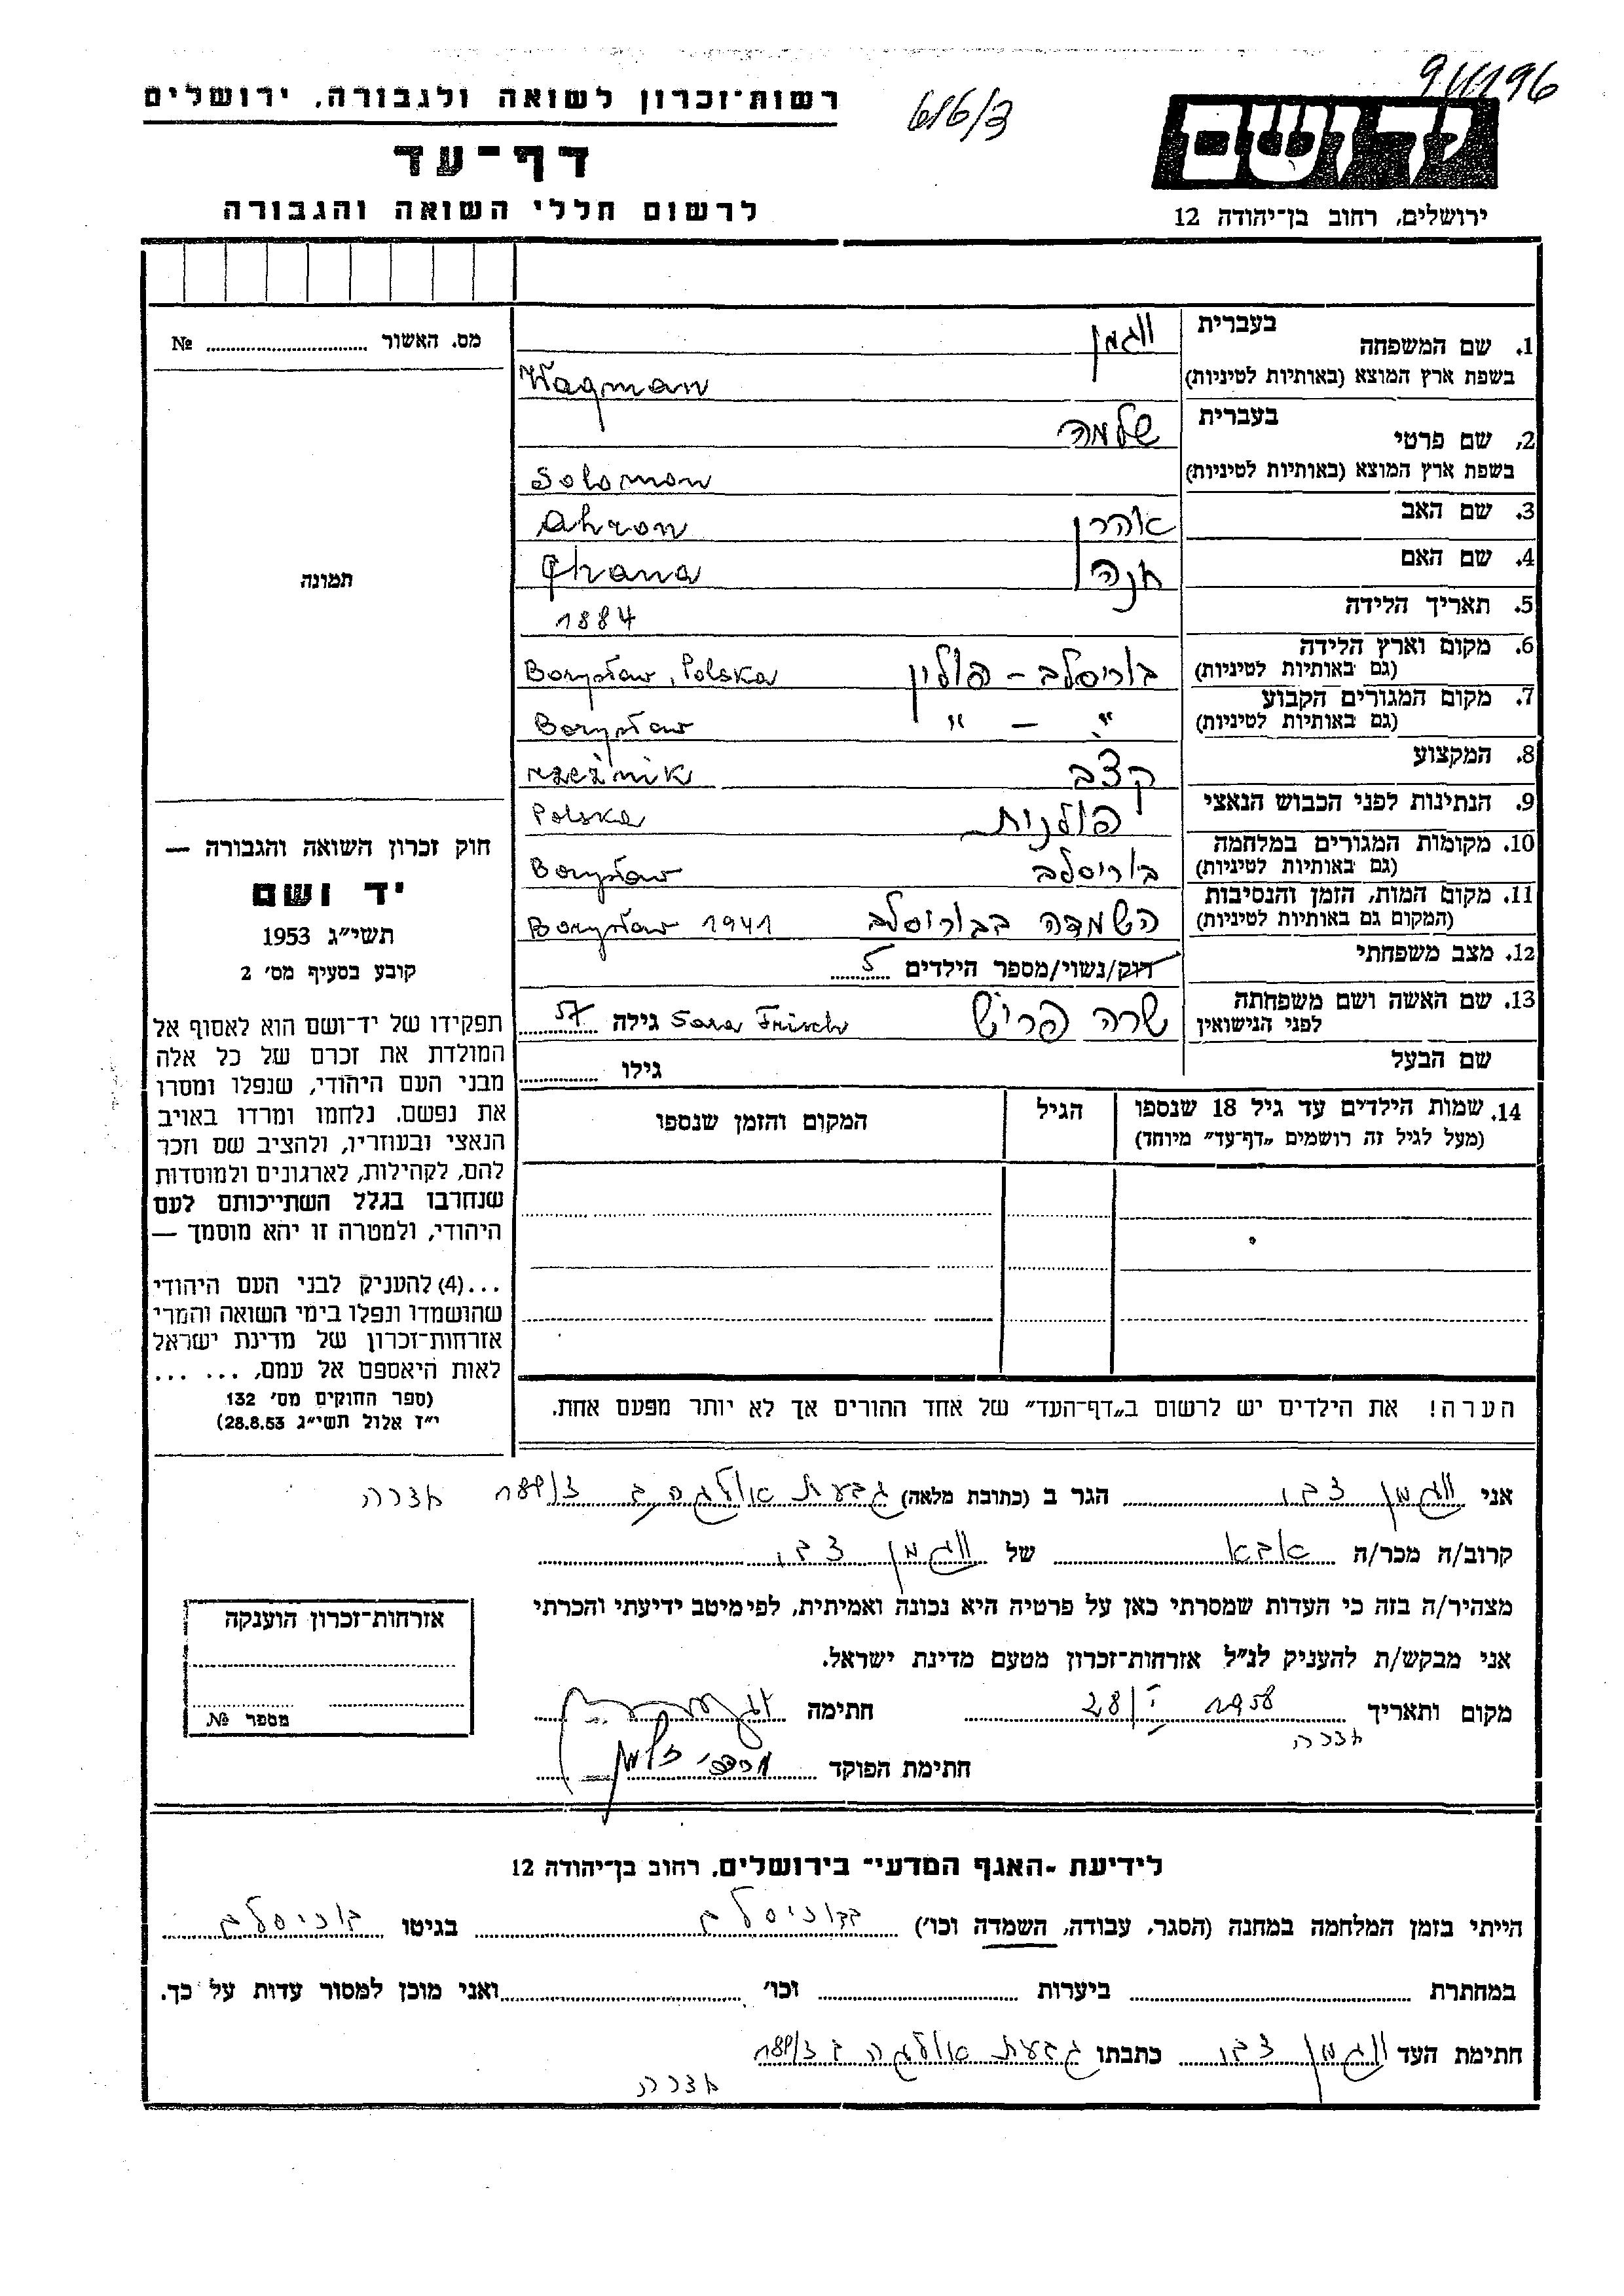 רשות־זכרון לשואה ולגבורה, ירושלים
616/3
דף־עד
לרשום חללי השואה והגבורה
יד ושם
ירושלים, רחוב בן־יהודה 12
1. שם המשפחה בעברית וגמן
בשפת ארץ המוצא (באותיות לטיניות) Wagman
2. שם פרטי בעברית שלמה
בשפת ארץ המוצא (באותיות לטיניות) Solomon
3. שם האב אהרן Ahron
4. שם האם חנה Chana
5. תאריך הלידה 1884
6. מקום וארץ הלידה (גם באותיות לטיניות) בוריסלב - פולין Borysław, Polska
7. מקום המגורים הקבוע (גם באותיות לטיניות) " - " Borysław
8. המקצוע קצב rzeźnik
9. הנתינות לפני הכבוש הנאצי פולנית Polska
10. מקומות המגורים במלחמה (גם באותיות לטיניות) בוריסלב Borysław
11. מקום המות, הזמן והנסיבות (המקום גם באותיות לטיניות) השמדה בבוריסלב Borysław 1941
12. מצב משפחתי רוק/נשוי/מספר הילדים 5
13. שם האשה ושם משפחתה לפני הנישואין שרה פריש Sara Frisch גילה 57
שם הבעל גילו
14. שמות הילדים עד גיל 18 שנספו (מעל לגיל זה רושמים "דף־עד" מיוחד) הגיל המקום והזמן שנספו
הערה! את הילדים יש לרשום ב"דף־העד" של אחד ההורים אך לא יותר מפעם אחת.
מס. האשור №
תמונה
חוק זכרון השואה והגבורה —
יד ושם
תשי"ג 1953
קובע בסעיף מס׳ 2
תפקידו של יד־ושם הוא לאסוף אל
המולדת את זכרם של כל אלה
מבני העם היהודי, שנפלו ומסרו
את נפשם, נלחמו ומרדו באויב
הנאצי ובעוזריו, ולהציב שם וזכר
להם, לקהילות, לארגונים ולמוסדות
שנחרבו בגלל השתייכותם לעם
היהודי, ולמטרה זו יהא מוסמך —
...(4) להעניק לבני העם היהודי
שהושמדו ונפלו בימי השואה והמרי
אזרחות־זכרון של מדינת ישראל
לאות היאספם אל עמם, ... ...
(ספר החוקים מס׳ 132
י"ז אלול תשי"ג 28.8.53)
אני וגמן צבי הגר ב (כתובת מלאה) גבעת אולגה ב 189/3 חדרה
קרוב/ה מכר/ה אבא של וגמן צבי
מצהיר/ה בזה כי העדות שמסרתי כאן על פרטיה היא נכונה ואמיתית, לפי מיטב ידיעתי והכרתי
אני מבקש/ת להעניק לנ"ל אזרחות־זכרון מטעם מדינת ישראל.
מקום ותאריך 1958 28/I חתימה
חדרה
חתימת הפוקד
אזרחות־זכרון הוענקה
מספר №
לידיעת "האגף המדעי" בירושלים, רחוב בן־יהודה 12
הייתי בזמן המלחמה במחנה (הסגר, עבודה, השמדה וכו׳) בבוריסלב בגיטו בוריסלב
במחתרת ביערות וכו׳ ואני מוכן למסור עדות על כך.
חתימת העד וגמן צבי כתבתו גבעת אולגה ב 189/3
חדרה